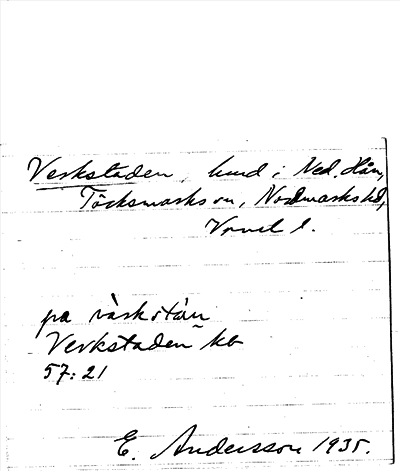 Verkstaden, hmd i Ned. Hån,
Töcksmarks sn, Nordmarks hd,
Vrml l.
pa värkstán
Verkstaden kb
57:21
E. Andersson 1935.